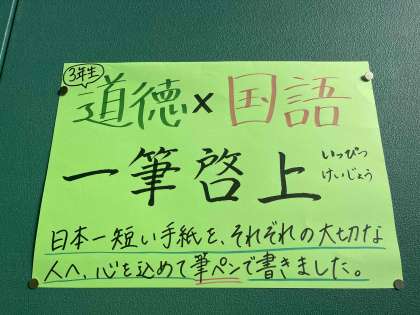 3年生
道徳×国語
一筆啓上 いっぴつ けいじょう
日本一短い手紙を、それぞれの大切な
人へ、心を込めて筆ペンで書きました。